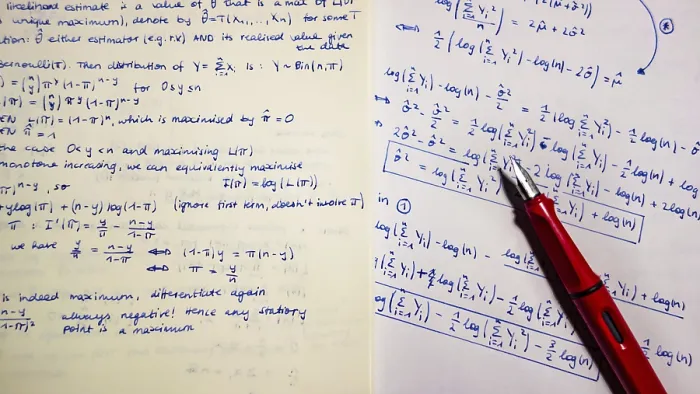 likelihood estimate is a value of θ that is a max of L(θ)
unique maximum), denote by θ̂=T(x₁,..., xₙ) for some T
θ̂ either estimator (e.g. r.v.) AND its realised value given
the data
Then distribution of Y = Σxᵢ is : Y ~ Bin(n, π)
= (n y) π^y (1-π)^(n-y) for 0≤y≤n
(π) = (n y) π^y (1-π)^(n-y)
L(π) = (1-π)ⁿ, which is maximised by π̂ = 0
π̂ = 1
the case 0<y<n and maximising L(π)
monotone increasing, we can equivalently maximise
l(π) = log(L(π))
n-y, so
+ylog(π) + (n-y) log(1-π) (ignore first term, doesn't involve π)
π : l'(π) = y/π - (n-y)/(1-π)
we have y/π = (n-y)/(1-π) ⟺ (1-π)y = π(n-y)
⟺ π = y/n
is indeed maximum, differentiate again
always negative! Hence any
point is a maximum
= 2μ̂ + 2σ̂²
⟺ 1/2 (log(Σᵢ₌₁ⁿ Yᵢ²) - log(n) - 2σ̂²) = μ̂
log(Σᵢ₌₁ⁿ Yᵢ) - log(n) - σ̂²/2 = 1/2 log(Σᵢ₌₁ⁿ Yᵢ²) - 1/2 log(n) - σ̂
⟺ σ̂² - σ̂²/2 = 1/2 log(Σᵢ₌₁ⁿ Yᵢ²) - log(Σᵢ₌₁ⁿ Yᵢ) - 1/2 log(n) + log
2σ̂² - σ̂² = log(Σᵢ₌₁ⁿ Yᵢ²) - 2 log(Σᵢ₌₁ⁿ Yᵢ) - log(n) + 2log(n)
σ̂² = log(Σᵢ₌₁ⁿ Yᵢ²) Yᵢ) + log(n)
in ①
log(Σᵢ₌₁ⁿ Yᵢ) - log(n) - log(Σ + log(n)
Yᵢ) + log(Σᵢ₌₁ⁿ Yᵢ) - 1/2 log(Σᵢ₌₁ⁿ 1/2 log(n)
log(Σᵢ₌₁ⁿ Yᵢ) - 1/2 log(Σᵢ₌₁ⁿ Yᵢ²) - 3/2 log(n)